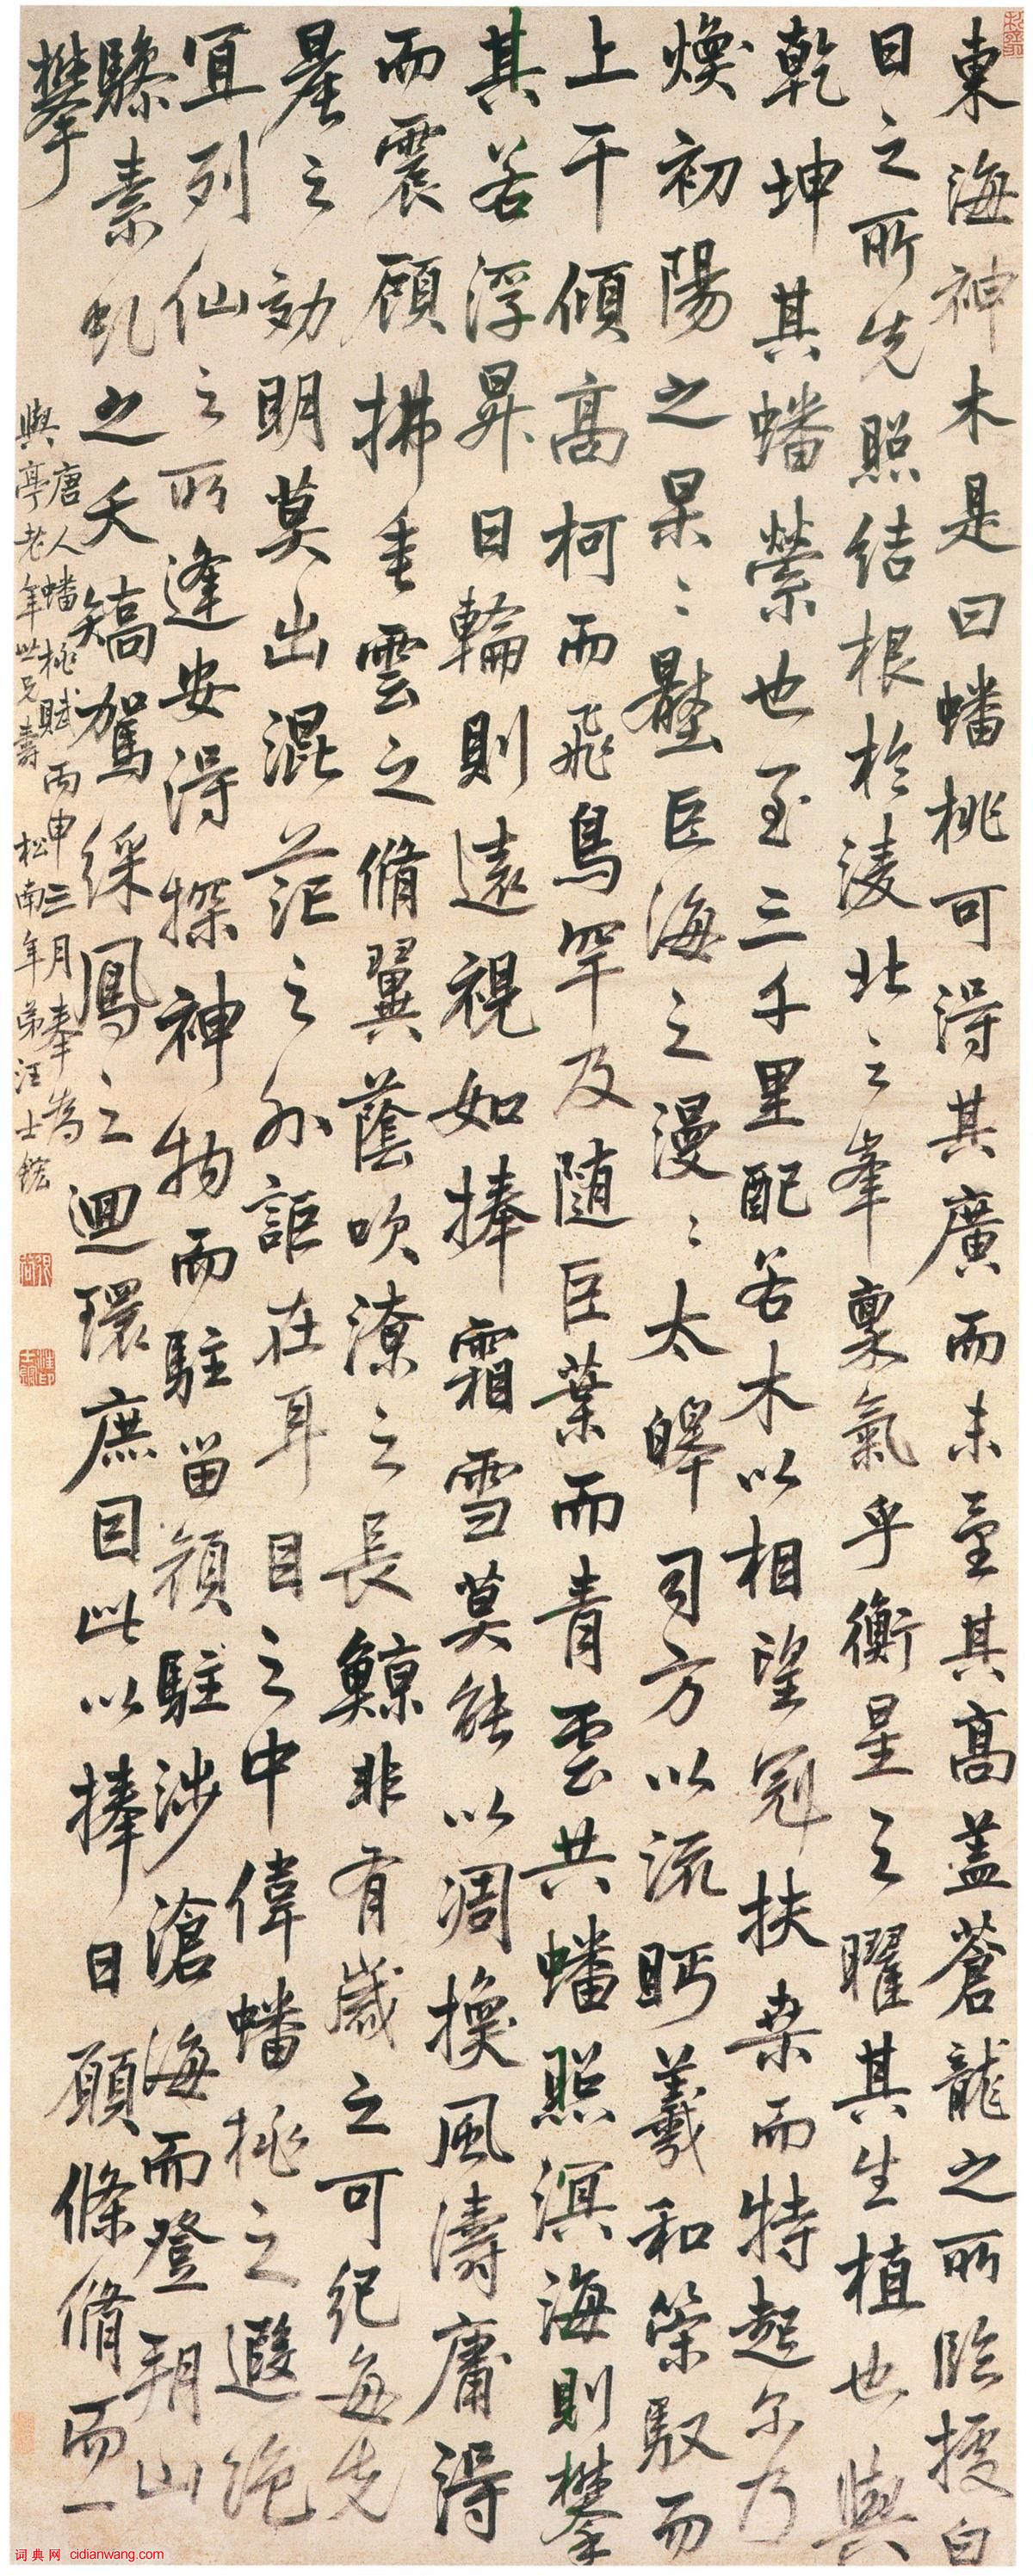 東海神木是曰蟠桃可得其廣而未量其高蓋蒼龍之所臨授白
日之所先照結根於淩北之峯稟氣乎衡星之曜其生植也與
乾坤其蟠縈也至三千里配若木以相望冠扶桑而特起尔乃
煥初陽之杲〻壓巨海之漫〻太皞司方以流眄羲和策馭而
上干傾高柯而飛鳥罕及隨巨葉而青雲共蟠照溟海則攀
其若浮昇日輪則遠視如捧霜雪莫能以凋換風濤庸得
而震頋拂垂雲之脩翼蔭吹潦之長鯨非有歲之可紀每先
星之効明莫出混茫之外詎在耳目之中偉蟠桃之遐絶
宜列仙之所逢安得探神物而駐留顏駐涉滄海而登朔山
驂素虬之夭矯駕綵鳳之迴環庶目此以捧日願條脩而一
攀
唐人蟠桃賦丙申三月奉為
與亭老年世兄壽 松南年弟汪士鋐
词典网 cidianwang.com